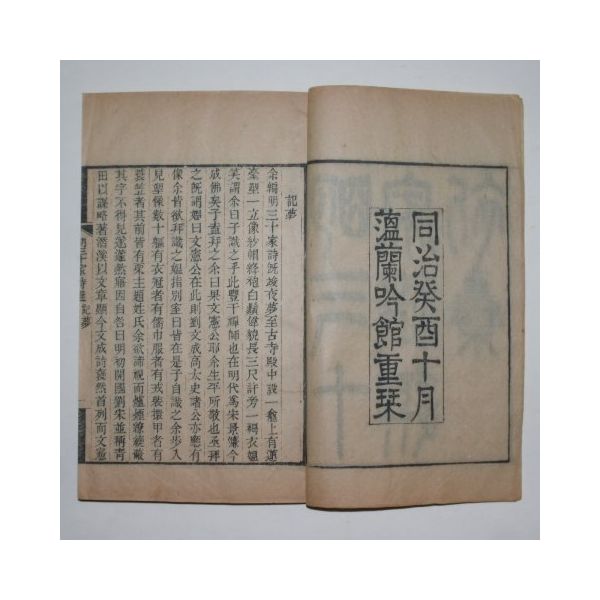 同治癸酉十月
蘊蘭吟館重栞
記夢
余輯明三十家詩既竣夜夢至古寺殿中設一龕上有蓮
臺塑一立像紗帽絳袍白鬚偉貌長三尺許旁一褐衣媼
笑謂余曰子識之乎此豐干禪師也在明代為宋景濂今
成佛矣子盍拜之余曰果文憲公耶余生平所敬也亟拜
之既謂媼曰文憲公在此則劉文成高太史諸公亦應有
像余皆欲拜識之媼指別室曰皆在是子自識之余步入
室見像數十軀有衣冠者有儒巾服者有戎裝擐甲者有
裘笠者其前皆有栗主題姓氏余欲諦視而爐煙繚繞蔽
其字不得見遽蘧然寤因自咎曰明初開國劉宋並稱青
田以謀略著潛溪以文章顯今文成詩裒然首列而文憲
明三十家詩選記夢